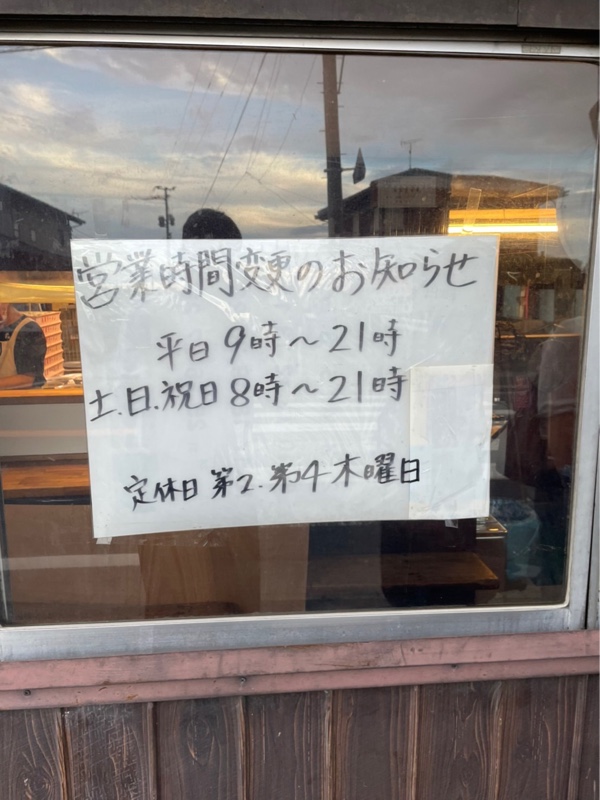 営業時間変更のお知らせ
平日 9時～21時
土.日.祝日 8時～21時
定休日 第2.第4木曜日